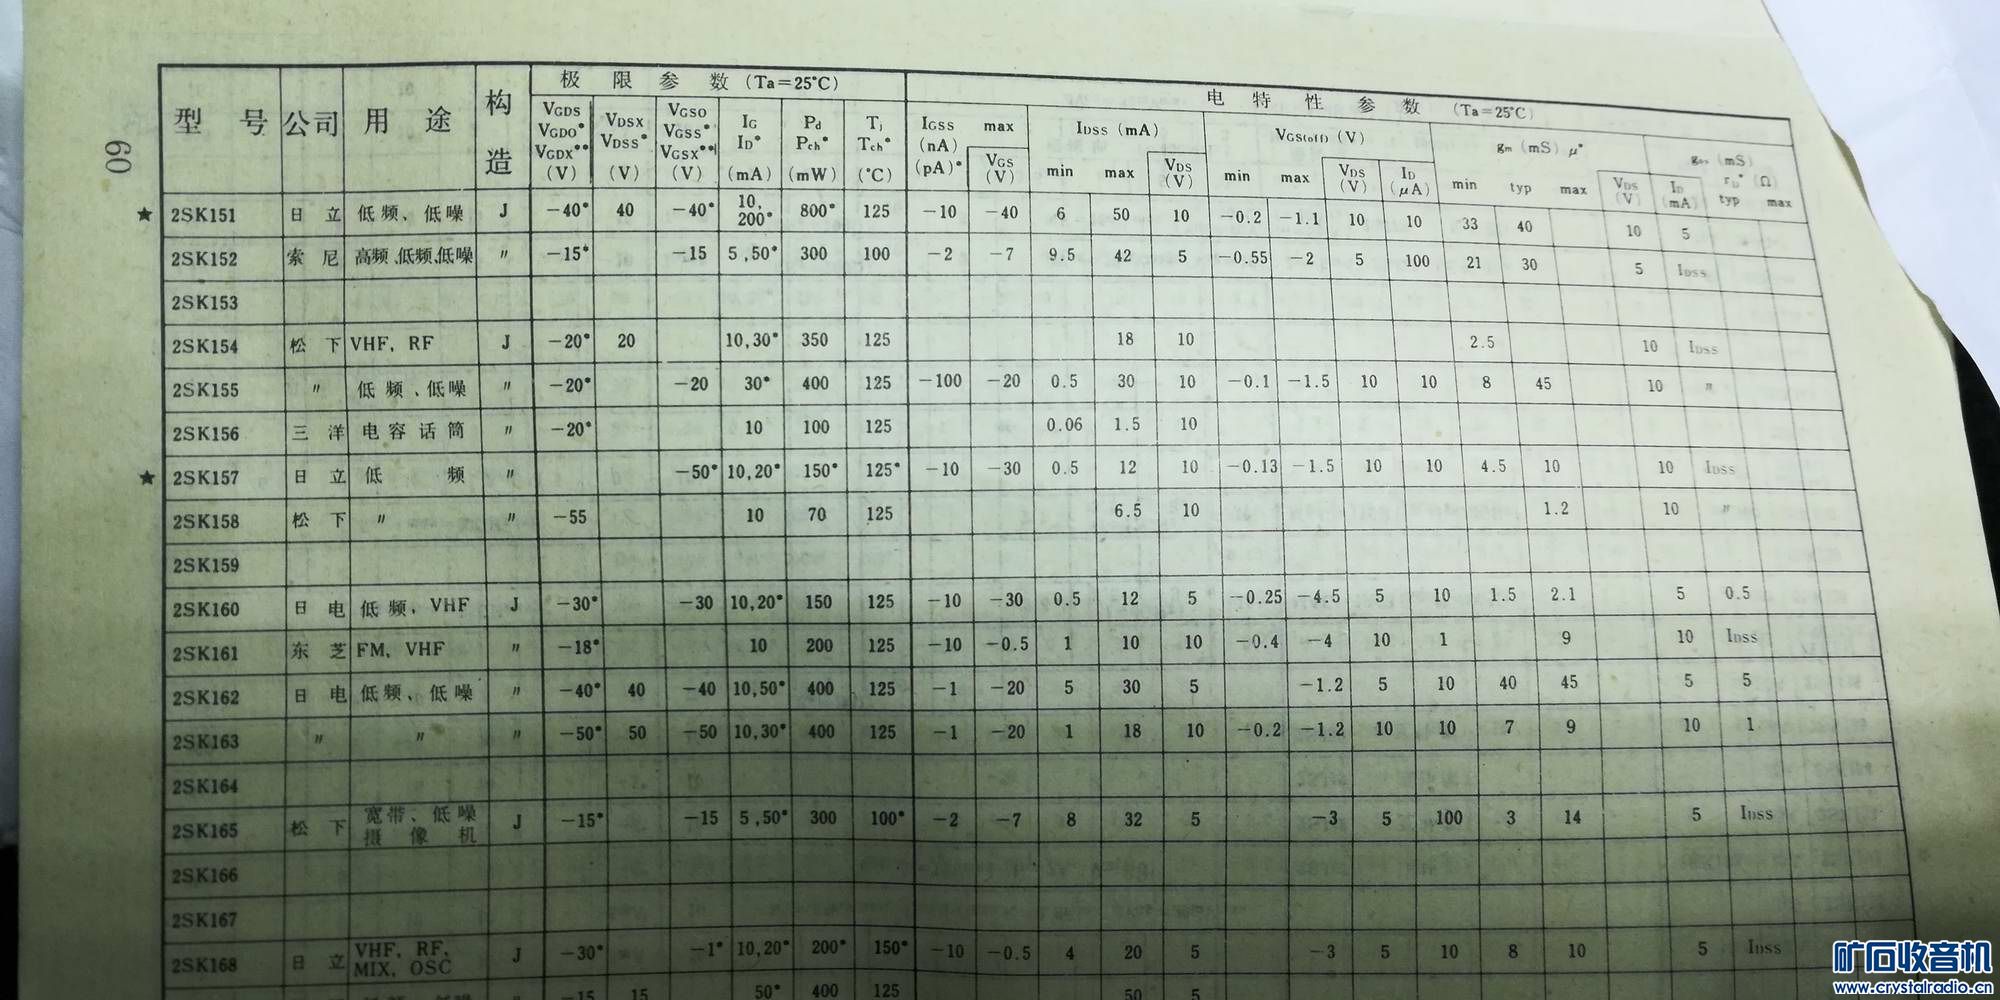 60
型 号 公司 用 途 构造 极 限 参 数 (Ta=25°C) 电 特 性 参 数 (Ta=25°C)
VGDS VGDO* VGDX** (V) VDSX VDSS* (V) VGSO VGSS* VGSX** (V) IG ID* (mA) Pd Pch* (mW) Tj Tch* (°C) IGSS (nA) (pA)* max VGS (V) IDSS (mA) min max VDS (V) VGS(off) (V) min max VDS (V) ID (μA) gm (mS) μ* min typ max VDS (V) ID (mA) (mS) (Ω) typ max
★ 2SK151 日 立 低频、低噪 J −40* 40 −40* 10, 200* 800* 125 −10 −40 6 50 10 −0.2 −1.1 10 10 33 40 10 5
2SK152 索 尼 高频、低频、低噪 〃 −15* −15 5,50* 300 100 −2 −7 9.5 42 5 −0.55 −2 5 100 21 30 5 IDSS
2SK153
2SK154 松 下 VHF, RF J −20* 20 10,30* 350 125 18 10 2.5 10 IDSS
2SK155 〃 低 频 、低噪 〃 −20* −20 30* 400 125 −100 −20 0.5 30 10 −0.1 −1.5 10 10 8 45 10 〃
2SK156 三 洋 电容话筒 〃 −20* 10 100 125 0.06 1.5 10
★ 2SK157 日 立 低 频 〃 −50* 10,20* 150* 125* −10 −30 0.5 12 10 −0.13 −1.5 10 10 4.5 10 10 IDSS
2SK158 松 下 〃 〃 −55 10 70 125 6.5 10 1.2 10 〃
2SK159
2SK160 日 电 低频, VHF J −30* −30 10,20* 150 125 −10 −30 0.5 12 5 −0.25 −4.5 5 10 1.5 2.1 5 0.5
2SK161 东 芝 FM, VHF 〃 −18* 10 200 125 −10 −0.5 1 10 10 −0.4 −4 10 1 9 10 IDSS
2SK162 日 电 低频、低噪 〃 −40* 40 −40 10,50* 400 125 −1 −20 5 30 5 −1.2 5 10 40 45 5 5
2SK163 〃 〃 〃 −50* 50 −50 10,30* 400 125 −1 −20 1 18 10 −0.2 −1.2 10 10 7 9 10 1
2SK164
2SK165 松 下 宽带、低噪 摄 像 机 J −15* −15 5,50* 300 100* −2 −7 8 32 5 −3 5 100 3 14 5 IDSS
2SK166
2SK167
2SK168 日 立 VHF, RF, MIX, OSC J −30* −1* 10,20* 200* 150* −10 −0.5 4 20 5 −3 5 10 8 10 5 IDSS
−15 15 50* 400 125 50 5
矿石收音机
www.crystalradio.cn